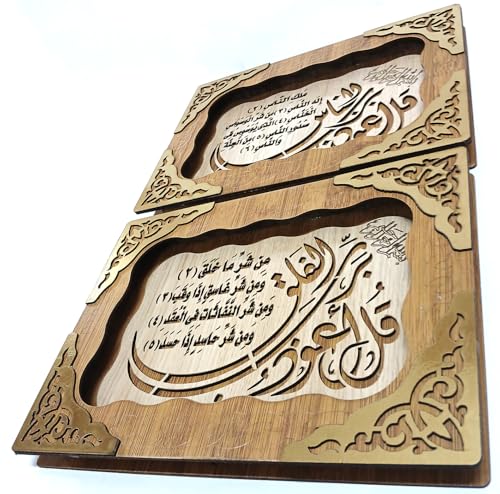 قل أعوذ برب الناس
مَلِكِ النَّاسِ (٢)
إِلَهِ النَّاسِ (٣) مِن شَرِّ الْوَسْوَاسِ
الْخَنَّاسِ (٤) الَّذِي يُوَسْوِسُ فِي
صُدُورِ النَّاسِ (٥) مِنَ الْجِنَّةِ
وَالنَّاسِ (٦)
قُلْ أَعُوذُ بِرَبِّ الْفَلَقِ
مِن شَرِّ مَا خَلَقَ (٢)
وَمِن شَرِّ غَاسِقٍ إِذَا وَقَبَ (٣)
وَمِن شَرِّ النَّفَّاثَاتِ فِي الْعُقَدِ (٤)
وَمِن شَرِّ حَاسِدٍ إِذَا حَسَدَ (٥)